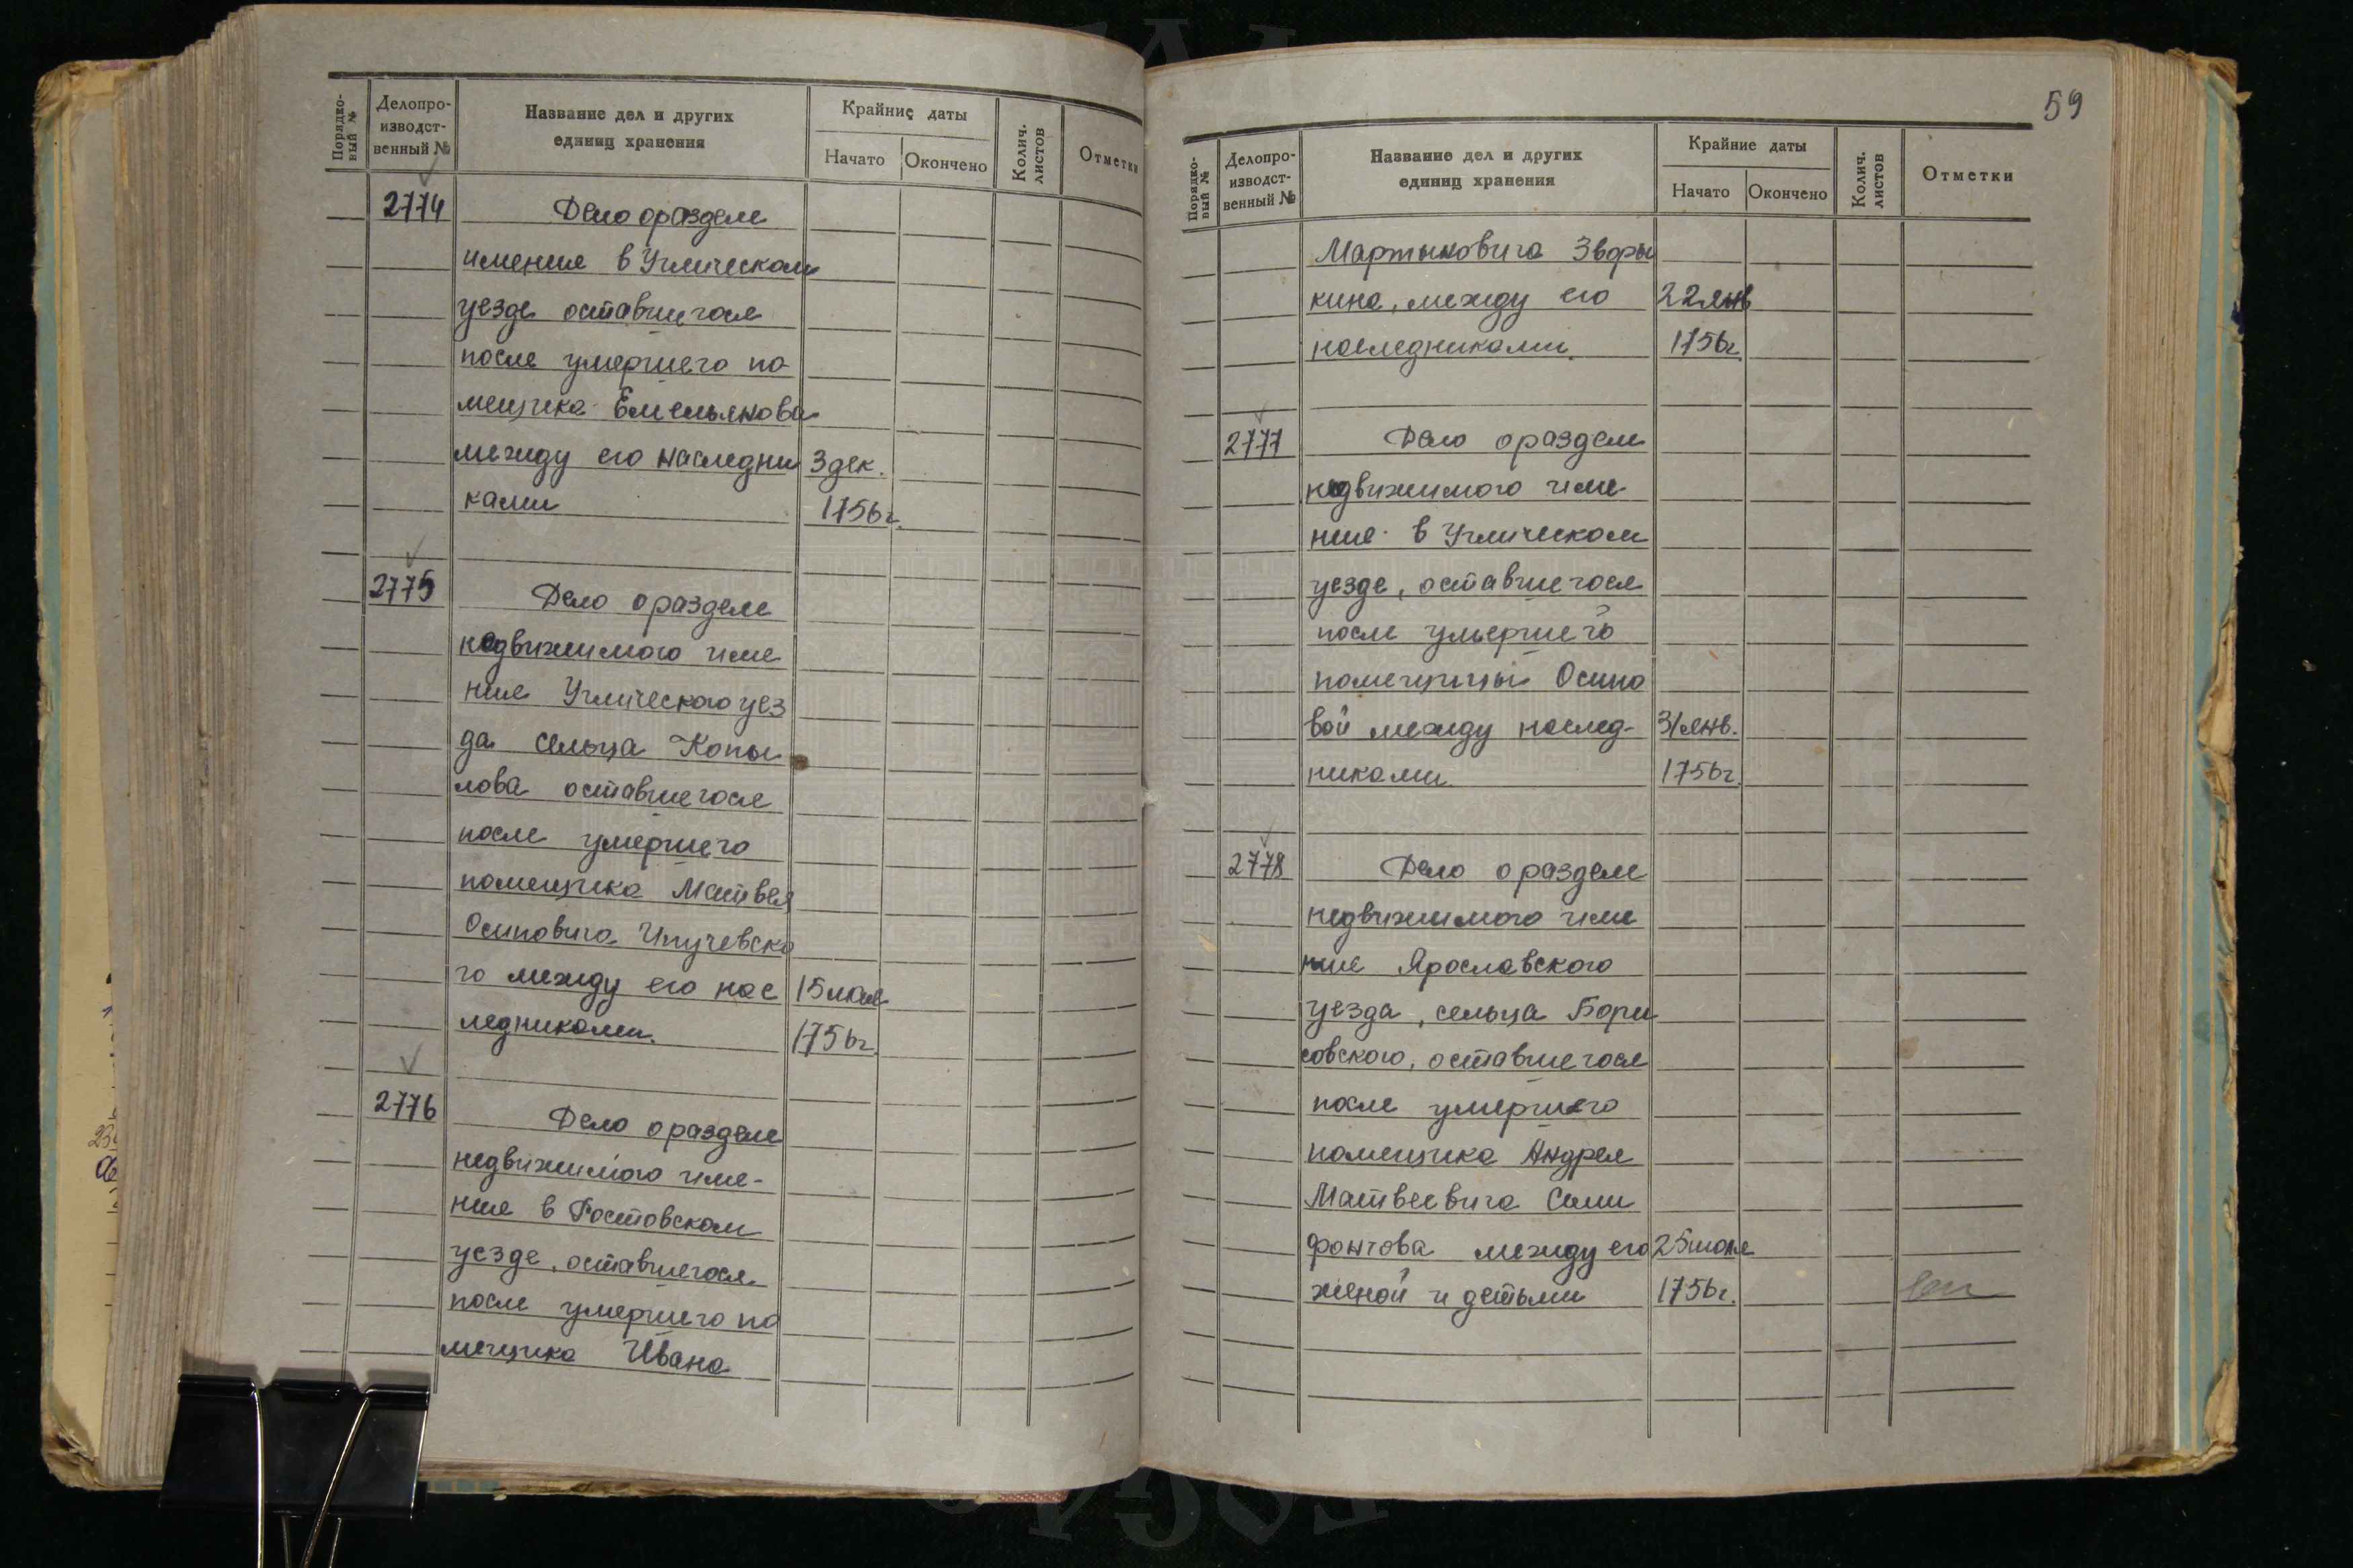 Порядко-
вый №
Делопро-
изводст-
венный №
Название дел и других
единиц хранения
Крайние даты
Начато
Окончено
Колич.
листов
Отметки
2774
Дело о разделе
имения в Угличском
уезде оставшегося
после умершего по
мещика Емельянова
между его наследни
3 дек.
ками
1756г.
2775
Дело о разделе
недвижимого име
ния Угличского уез
да сельца Копы
лова оставшегося
после умершего
помещика Матвея
Осиповича
го между его нас
15 мая
ледниками.
1756г.
2776
Дело о разделе
недвижимого име-
ния в Ростовском
уезде, оставшегося
после умершего по
мещика Ивана
59
Порядко-
вый №
Делопро-
изводст-
венный №
Название дел и других
единиц хранения
Крайние даты
Начато
Окончено
Колич.
листов
Отметки
Мартыновича Зворы
кина, между его
22 янв
наследниками.
1756г.
2777
Дело о разделе
недвижимого име-
ния в Угличском
уезде, оставшегося
после умершего
помещицы Осипо
вой между наслед-
31 янв.
никами.
1756г.
2778
Дело о разделе
недвижимого име
ния Ярославского
уезда, сельца Бори
совского, оставшегося
после умершего
помещика Андрея
Матвеевича Сели
фонтова между его
25 июля
женой и детьми
1756г.